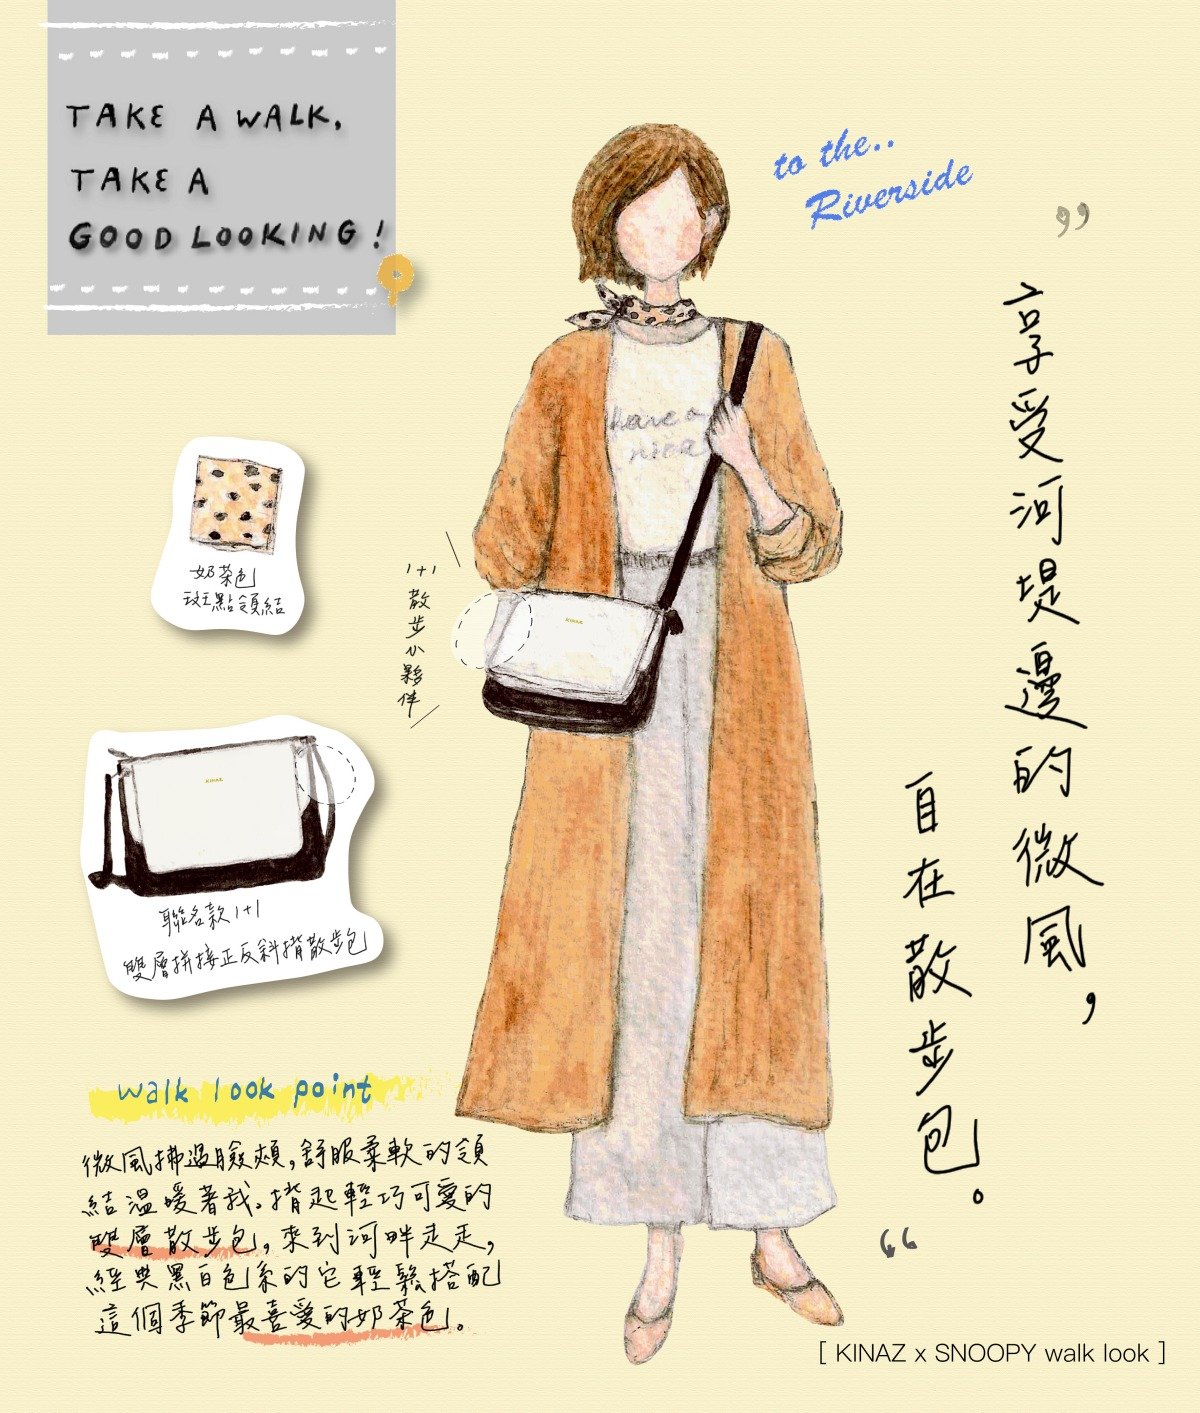 TAKE A WALK,
TAKE A
GOOD LOOKING!
to the..
Riverside
”
享受河堤邊的微風，
自在散步包。
“
have a
nice
奶茶色
斑點領結
1+1
散步小夥伴
KINAZ
KINAZ
聯名款1+1
雙層拼接正反斜揹散步包
walk look point
微風拂過臉頰，舒服柔軟的領
結溫暖著我。揹起輕巧可愛的
雙層散步包，來到河畔走走，
經典黑白色系的它輕鬆搭配
這個季節最喜愛的奶茶色。
[ KINAZ x SNOOPY walk look ]